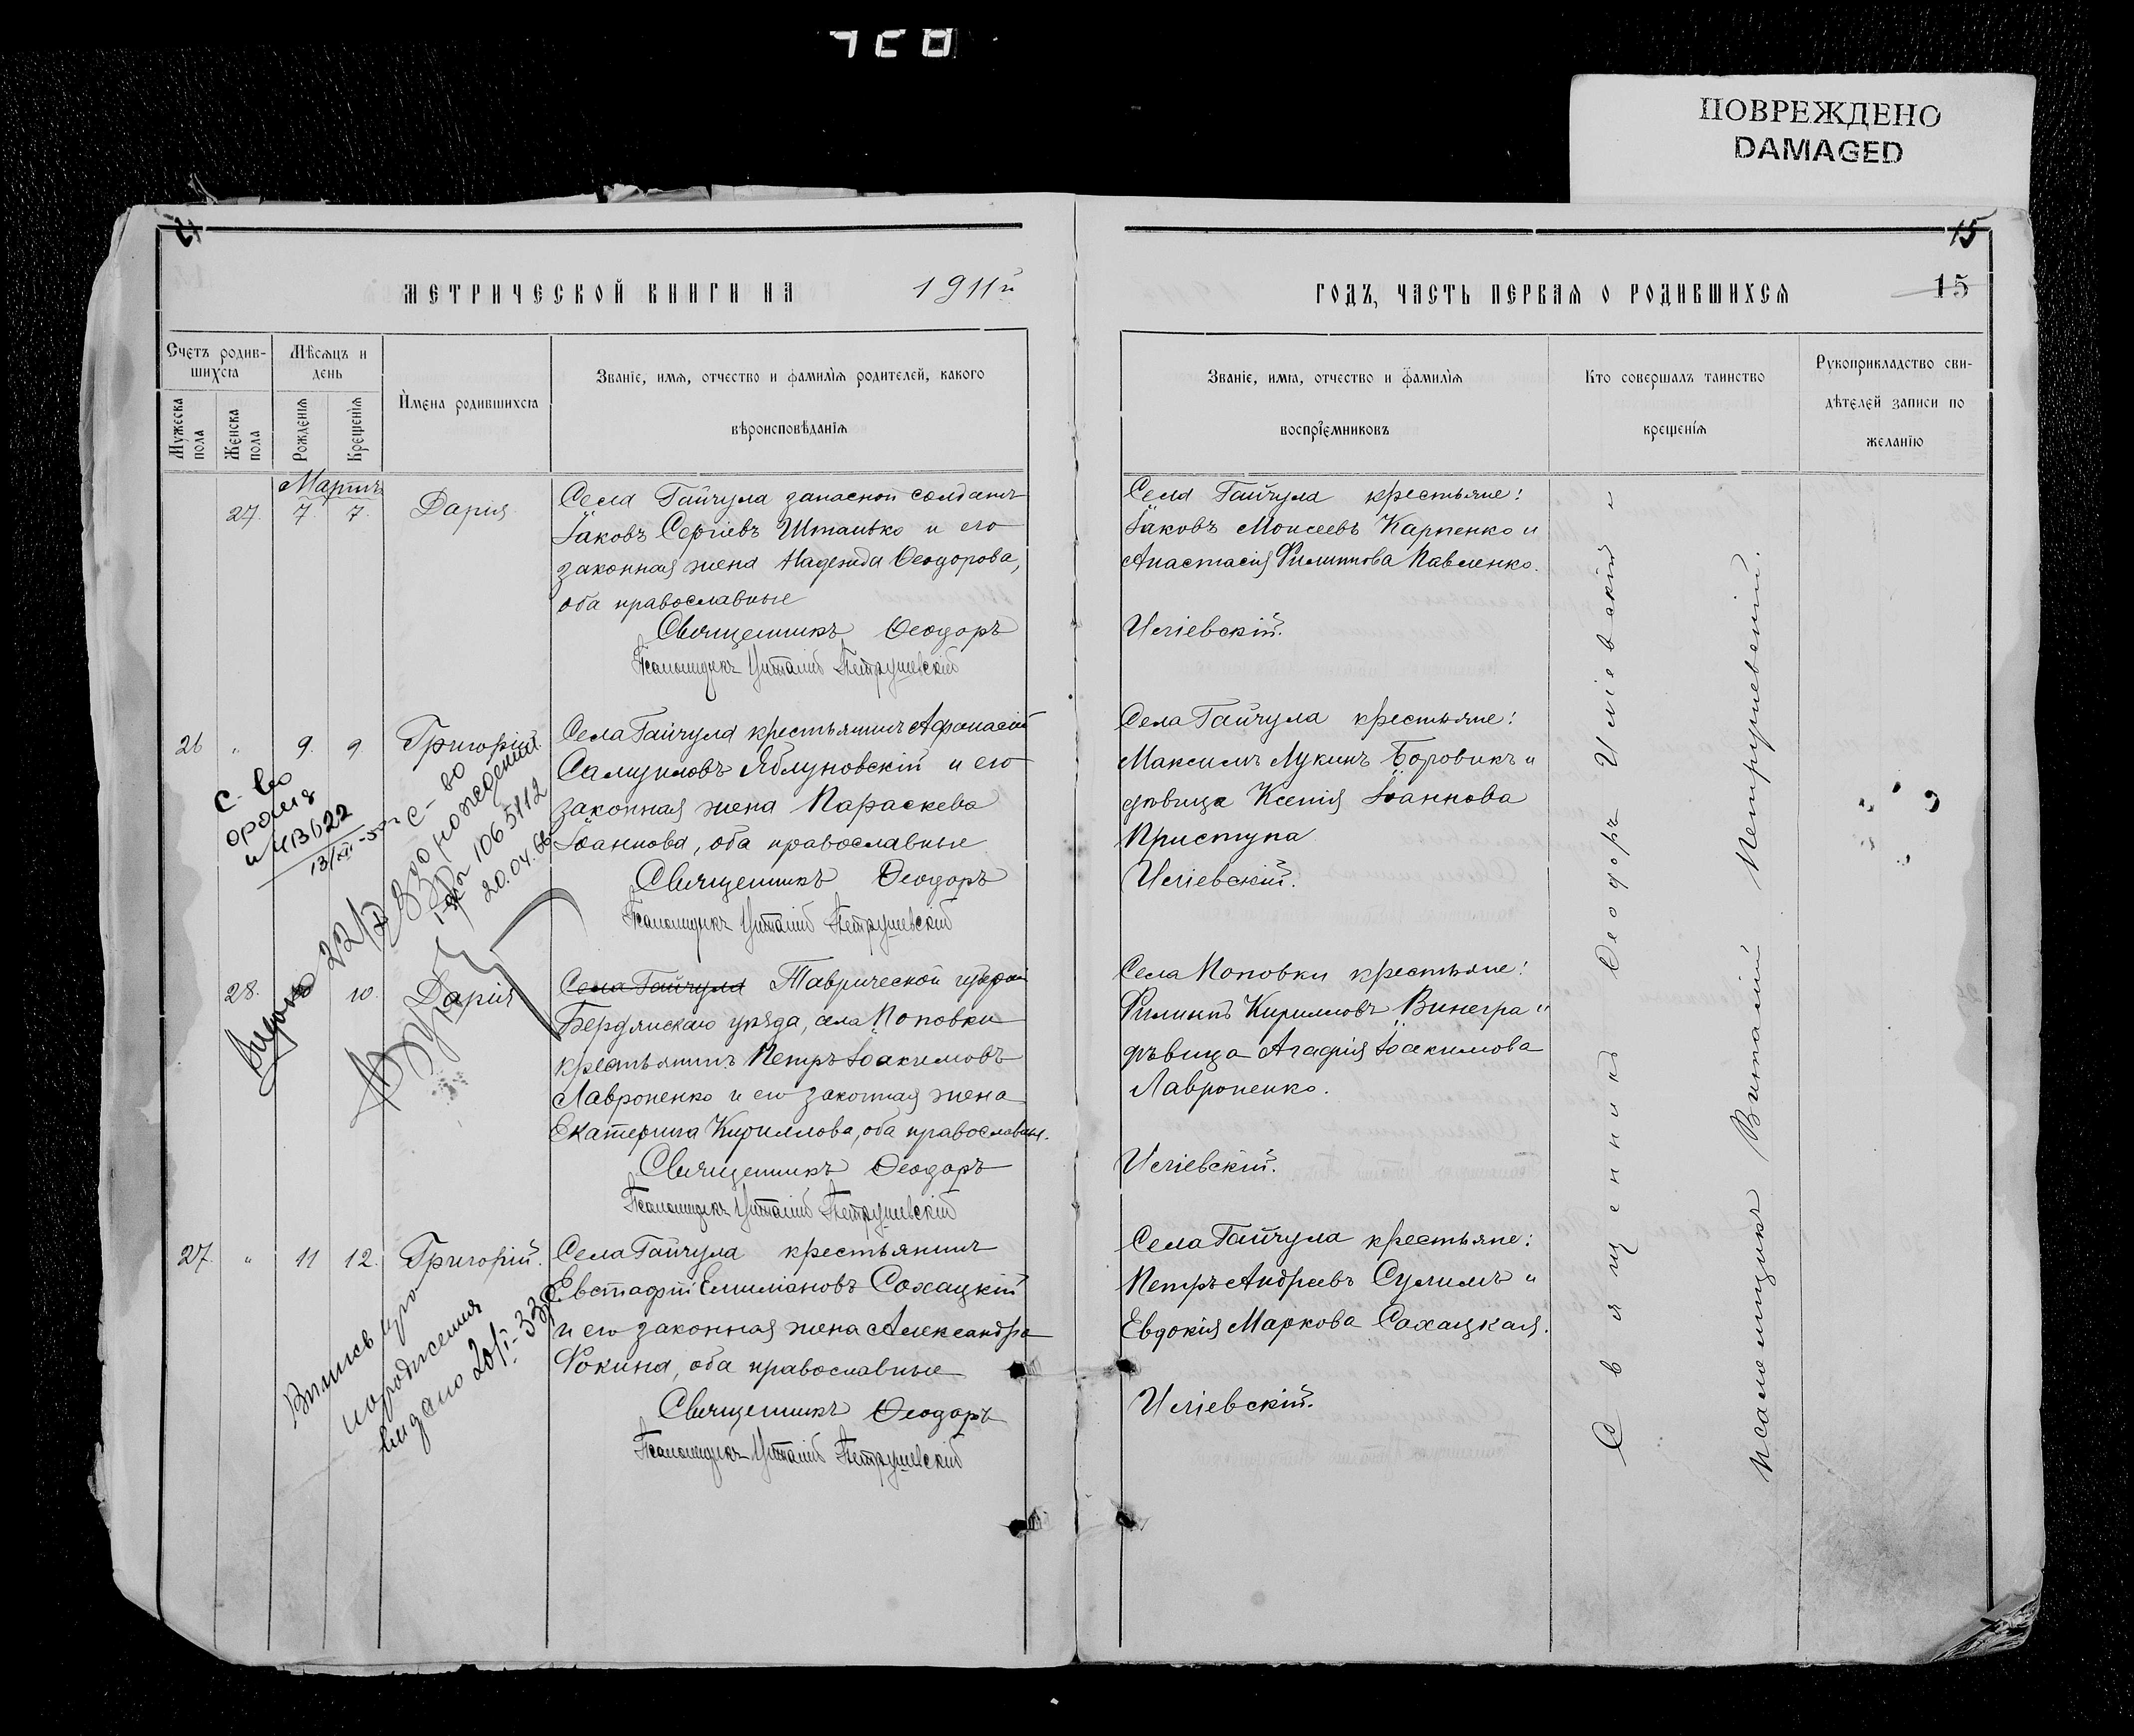 ПОВРЕЖДЕНО
DAMAGED
15
МЕТРИЧЕСКОЙ КНИГИ НА 1911й
ГОДЪ, ЧАСТЬ ПЕРВАЯ О РОДИВШИХСЯ
15
Счетъ родив-
шихся
Мѣсяцъ и
день
Имена родившихся
Званіе, имя, отчество и фамилія родителей, какого
вѣроисповѣданія
Мужеска
пола
Женска
пола
Рожденія
Крещенія
Званіе, имя, отчество и фамилія
воспріемниковъ
Кто совершалъ таинство
крещенія
Рукоприкладство сви-
дѣтелей записи по
желанію
Мартъ
27. 7. 7. Дарія
Села Гайчула запасной солдатъ
Іаковъ Сергіевъ Штанько и его
законная жена Надежда Ѳеодорова,
оба православные
Священникъ Ѳеодоръ
Псаломщикъ Виталій Петрушевскій
Села Гайчула крестьяне:
Іаковъ Моисеевъ Карпенко и
Анастасія Филиппова Павленко.
Иліевскій.
26 " 9. 9 Григорій.
Села Гайчула крестьянинъ Афанасій
Самуиловъ Яблуновскій и его
законная жена Параскева
Іоаннова, оба православные
Священникъ Ѳеодоръ
Псаломщикъ Виталій Петрушевскій
Села Гайчула крестьяне:
Максимъ Лукинъ Боровикъ и
дѣвица Ксенія Іоаннова
Приступа
Иліевскій.
с-во
о рожд
13/XII-55
с-во
о рождении
1065112
20.04.66
28. 10. Дарія
Села Гайчула Таврической губерніи
Бердянскаго уѣзда, села Поповки
крестьянинъ Петръ Іоакимовъ
Лавроненко и его законная жена
Екатерина Кириллова, оба православные.
Священникъ Ѳеодоръ
Псаломщикъ Виталій Петрушевскій
Села Поповки крестьяне:
Филиппъ Кирилловъ Винегра и
дѣвица Агафія Іоакимова
Лавроненко.
Иліевскій.
27. " 11 12. Григорій.
Села Гайчула крестьянинъ
Евстафій Емиліановъ Сохацкій
и его законная жена Александра
Фокина, оба православные
Священникъ Ѳеодоръ
Псаломщикъ Виталій Петрушевскій
Села Гайчула крестьяне:
Петръ Андреевъ Сулимъ и
Евдокія Маркова Сахацкая.
Иліевскій.
Випись про
народження
видано 20/I-33р
Священникъ Ѳеодоръ Иліевскій и
псаломщикъ Виталій Петрушевскій.